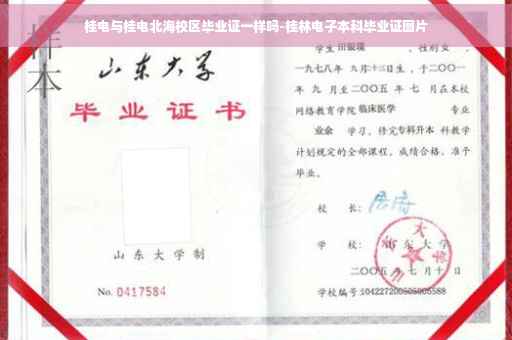 桂电与桂电北海校区毕业证一样吗-桂林电子本科毕业证图片
样本
山东大学
毕业证书
山东大学制
No. 0417584
学生 田银瑞 ，性别女 ，
一九七八年 九月十三日生，于二〇〇一
年 九 月至二〇〇五 年 七 月在本校
网络教育学院 临床医学 专业
业余 学习，修完专科升本 科教学
计划规定的全部课程，成绩合格，准予
毕业。
校 长：
学 校：山东大学
二〇〇五年七月十日
学校编号:104227200505005588